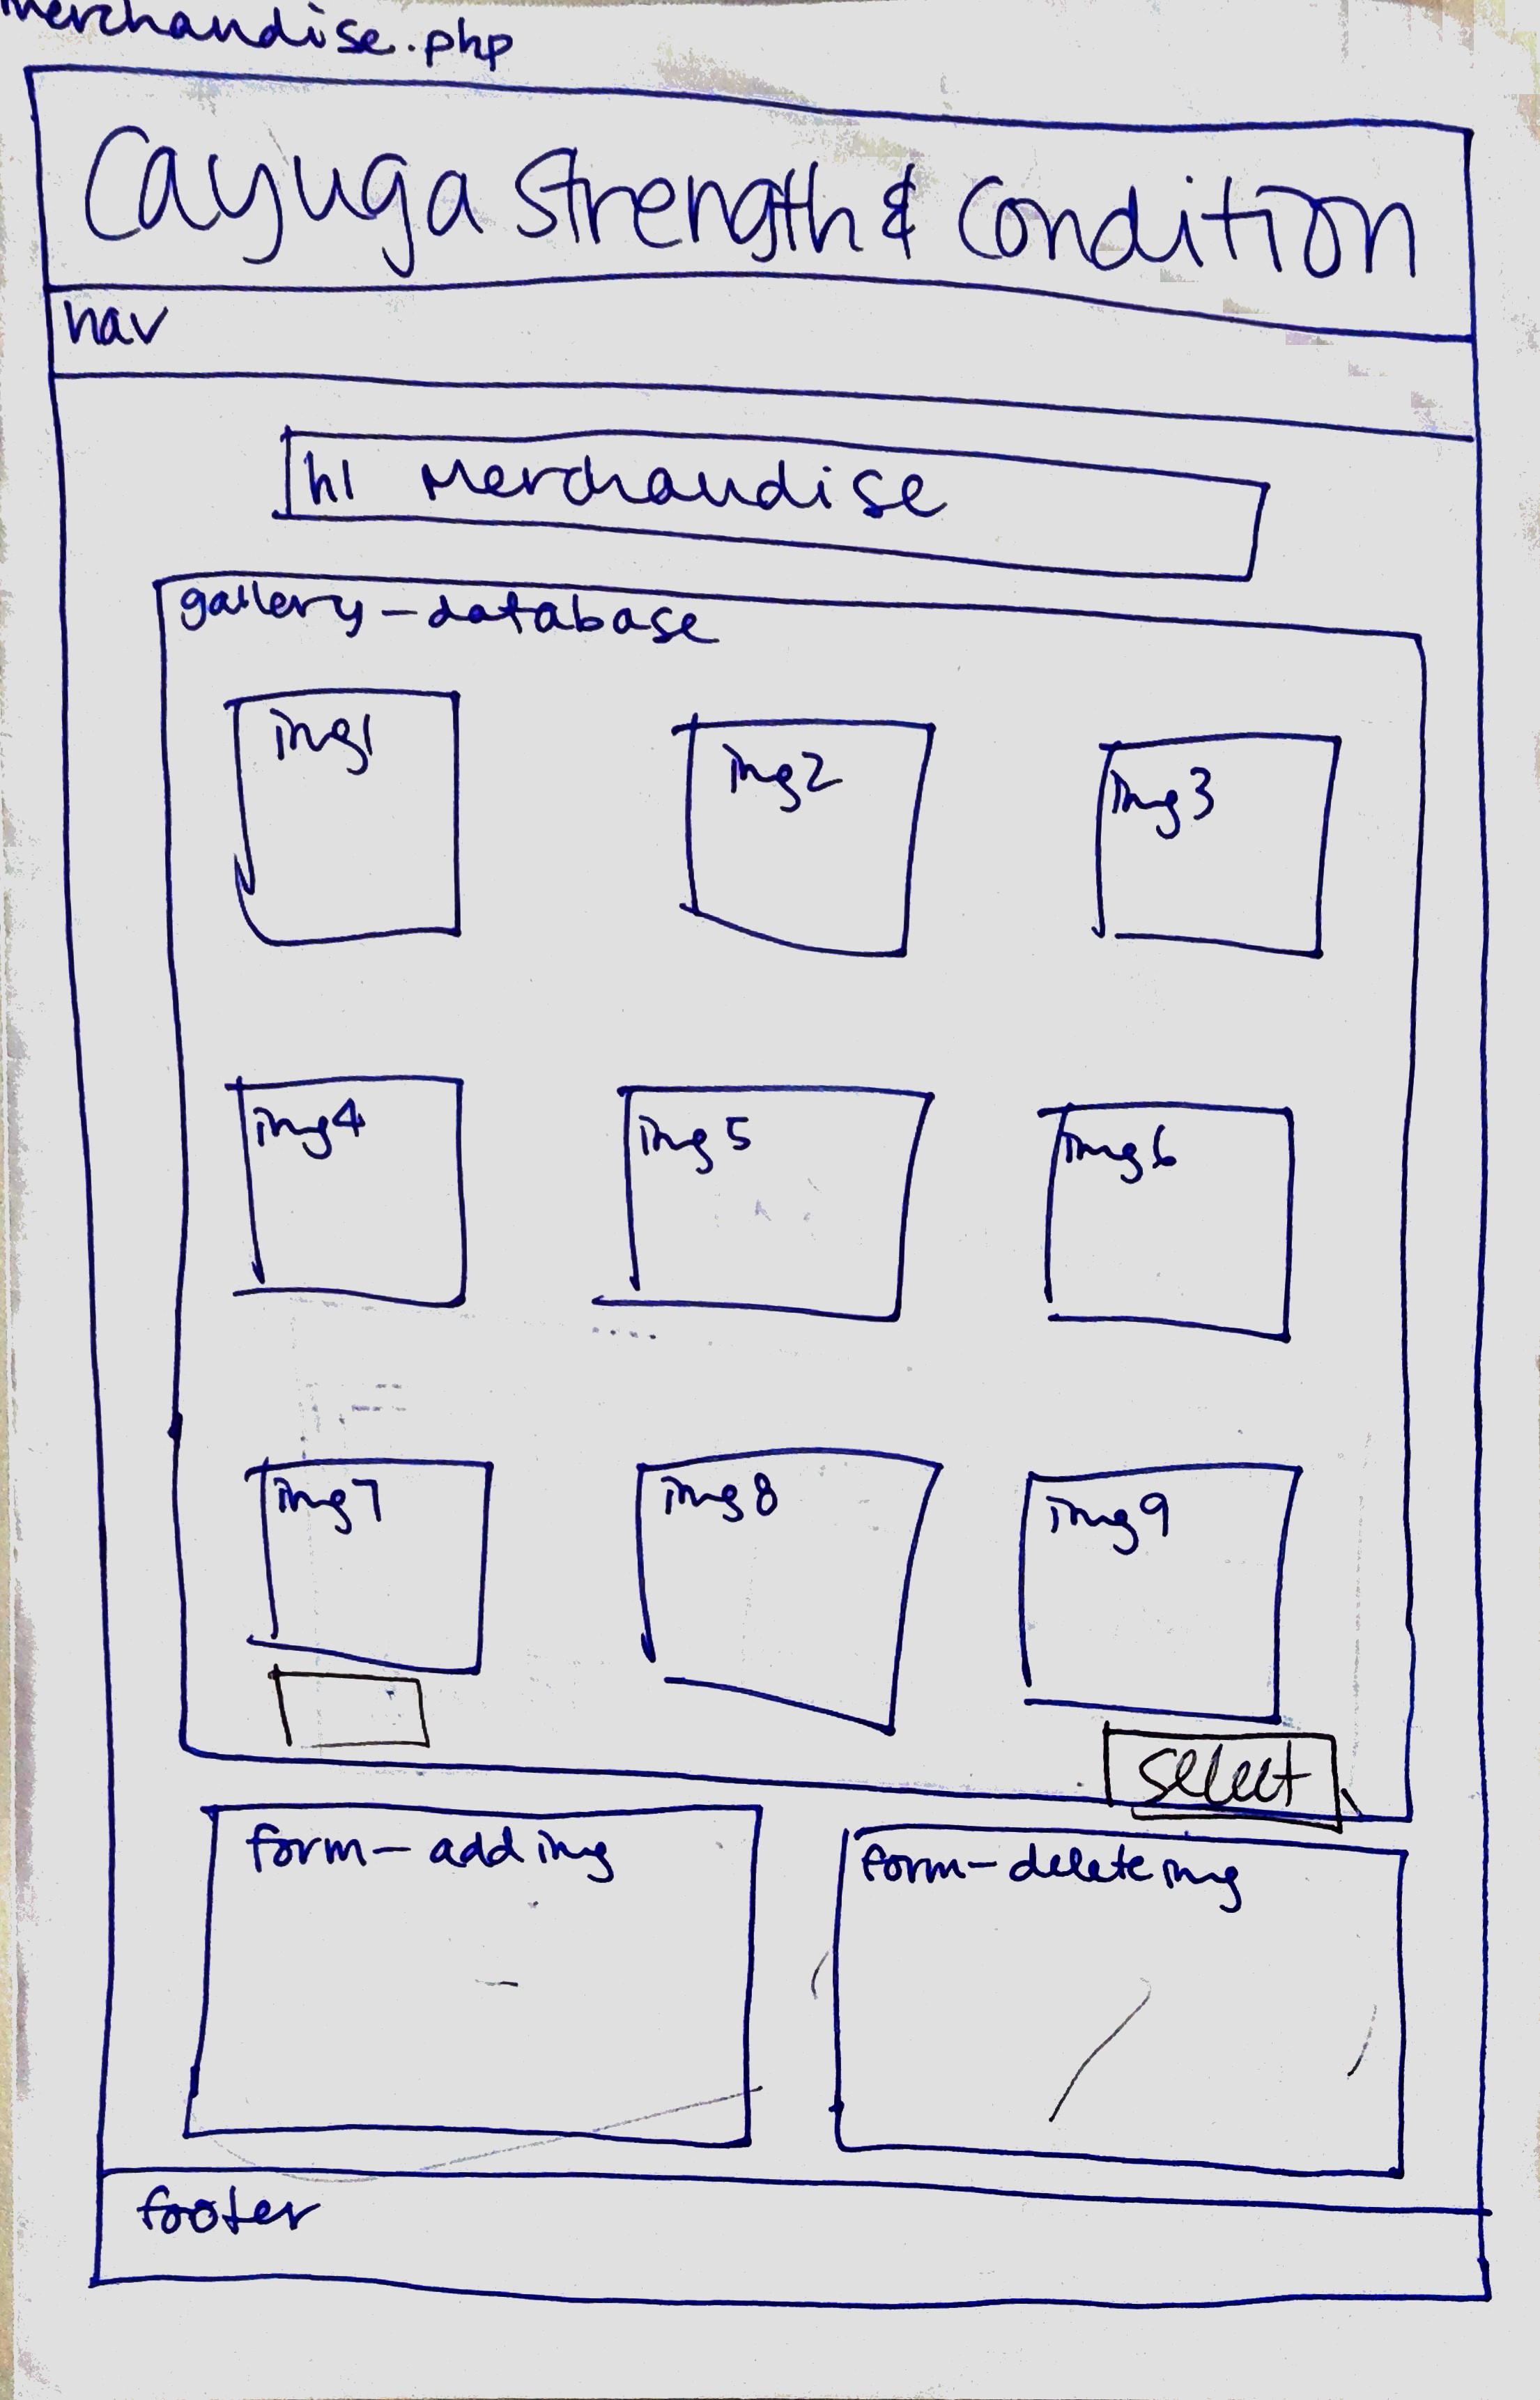 merchandise.php
Cayuga Strength & Condition
nav
h1 Merchandise
gallery-database
img1 img2 img3
img4 img5 img6
img7 img8 img9
select
form-add img form-delete img
footer